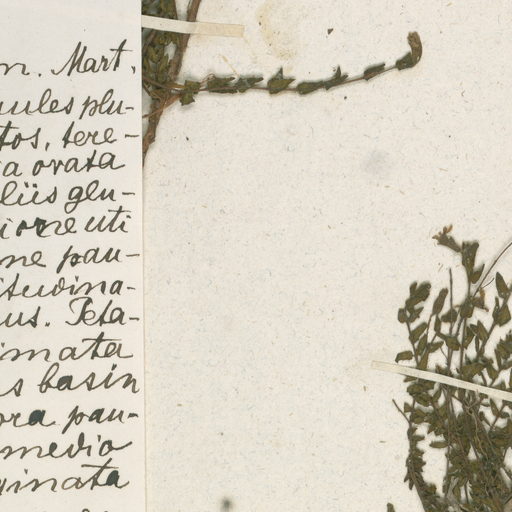 m. Mart.
ules plu-
tos, tere-
a ovata
liis glu-
ione uti
ne pau-
itudina-
us. Peta-
imata
s basin
ora pau-
medio
ginata